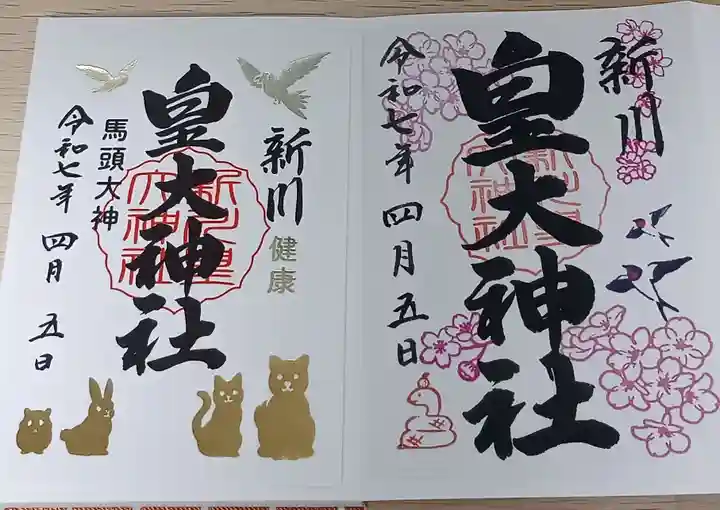 新川
健康
皇大神社
馬頭大神
令和七年 四月 五日
新川
皇大神社
令和七年 四月 五日